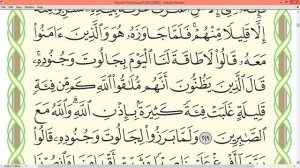 إِلَّا قَلِيلًا مِّنْهُمْ فَلَمَّا جَاوَزَهُۥ هُوَ وَٱلَّذِينَ ءَامَنُوا۟
مَعَهُۥ قَالُوا۟ لَا طَاقَةَ لَنَا ٱلْيَوْمَ بِجَالُوتَ وَجُنُودِهِۦ ۚ
قَالَ ٱلَّذِينَ يَظُنُّونَ أَنَّهُم مُّلَٰقُوا۟ ٱللَّهِ كَم مِّن فِئَةٍ
قَلِيلَةٍ غَلَبَتْ فِئَةً كَثِيرَةًۢ بِإِذْنِ ٱللَّهِ ۗ وَٱللَّهُ مَعَ
ٱلصَّٰبِرِينَ ٢٤٩ وَلَمَّا بَرَزُوا۟ لِجَالُوتَ وَجُنُودِهِۦ قَالُوا۟